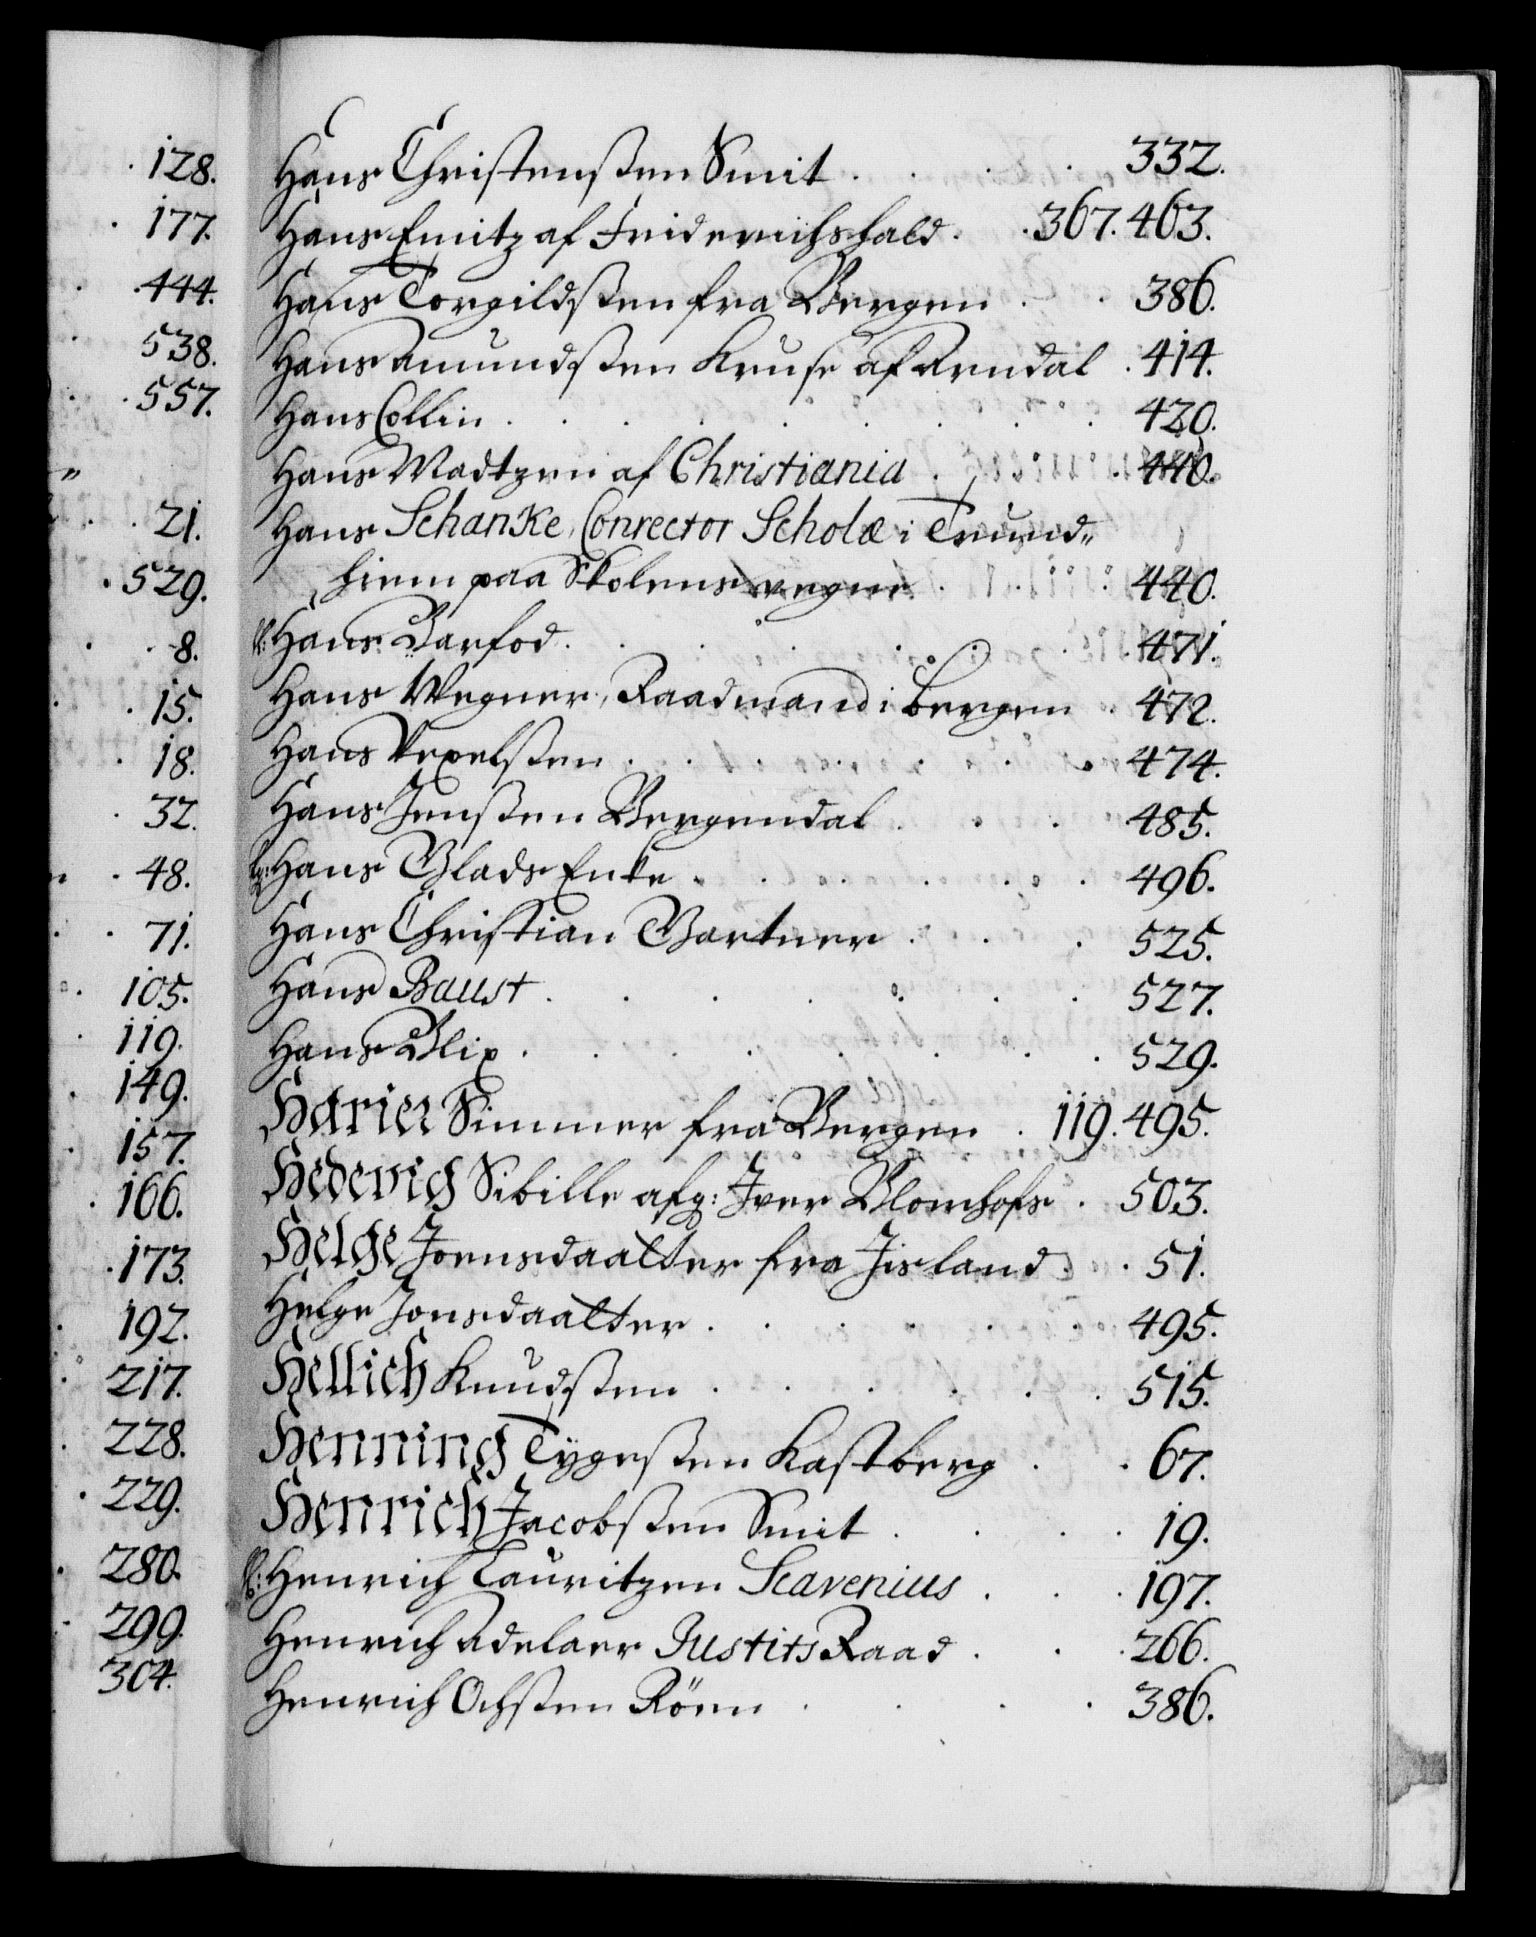 128.
177.
444.
538.
557.
"
21.
529.
8.
15.
18.
32.
48.
71.
105.
119.
149.
157.
166.
173.
192.
217.
228.
229.
280.
299.
304.
Hans Christenßen Smit . . . . 332.
Hans Emitz af Friderichshald . . 367. 463.
Hans Torgildßen fra Bergen . . 386.
Hans Amundßen Kruse af Arndal . 414.
Hans Collin . . . . . . . 420.
Hans Madtzen af Christiania . . . 440.
Hans Schanke, Conrector Scholæ i Trund„
hiem paa Skolens vegne . . . 440.
Hans Barfod . . . . . . 471.
Hans Wegner, Raadmand i Bergen . 472.
Hans Vexelßen . . . . . . 474.
Hans Jenßen Bergendal . . . 485.
Hans Blads Enke . . . . . 496.
Hans Christian Gartner . . . 525.
Hans Baust . . . . . . . 527.
Hans Blix . . . . . . . 529.
Harien Simmer fra Bergen . 119. 495.
Hedevich Sibille afg: Iver Blomhofs . 503.
Helge Joensdaatter fra Jisland . . 51.
Helge Jonsdaatter . . . . . 495.
Hellich Knudßen . . . . . . 515.
Henning Tygeßen Kastberg . . 67.
Henrich Jacobßen Smit . . . . 19.
Henrich Lauritzen Scavenius . . . 197.
Henrich Adelaer Justits Raad . . . 266.
Henrich Ochßen Röen . . . . 386.